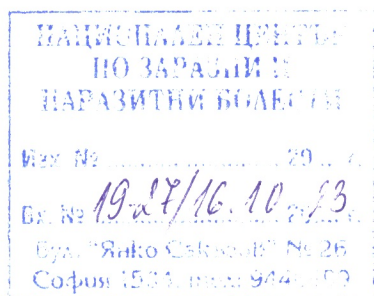 НАЦИОНАЛЕН ЦЕНТЪР
ПО ЗАРАЗНИ И
ПАРАЗИТНИ БОЛЕСТИ
Изх. № ................ 20.... г.
Вх. № 1927/16.10. 20 13 г.
Бул. "Янко Сакъзов" № 26
София 1504,